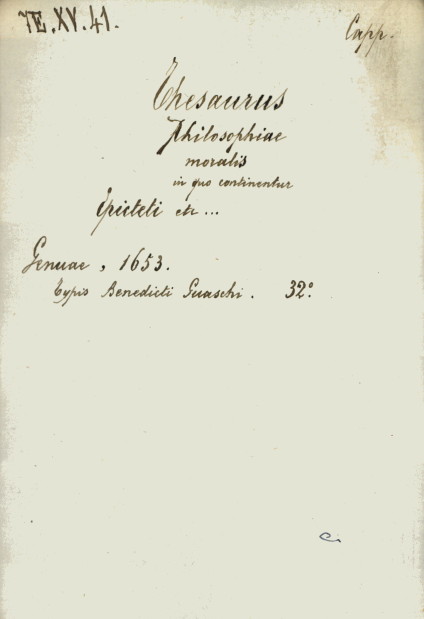 7E.XV.41.
Capp.
Thesaurus
Philosophiae
moralis
in quo continentur
Epicteti etc ...
Genuae, 1653.
typis Benedicti Guaschi. 32°.